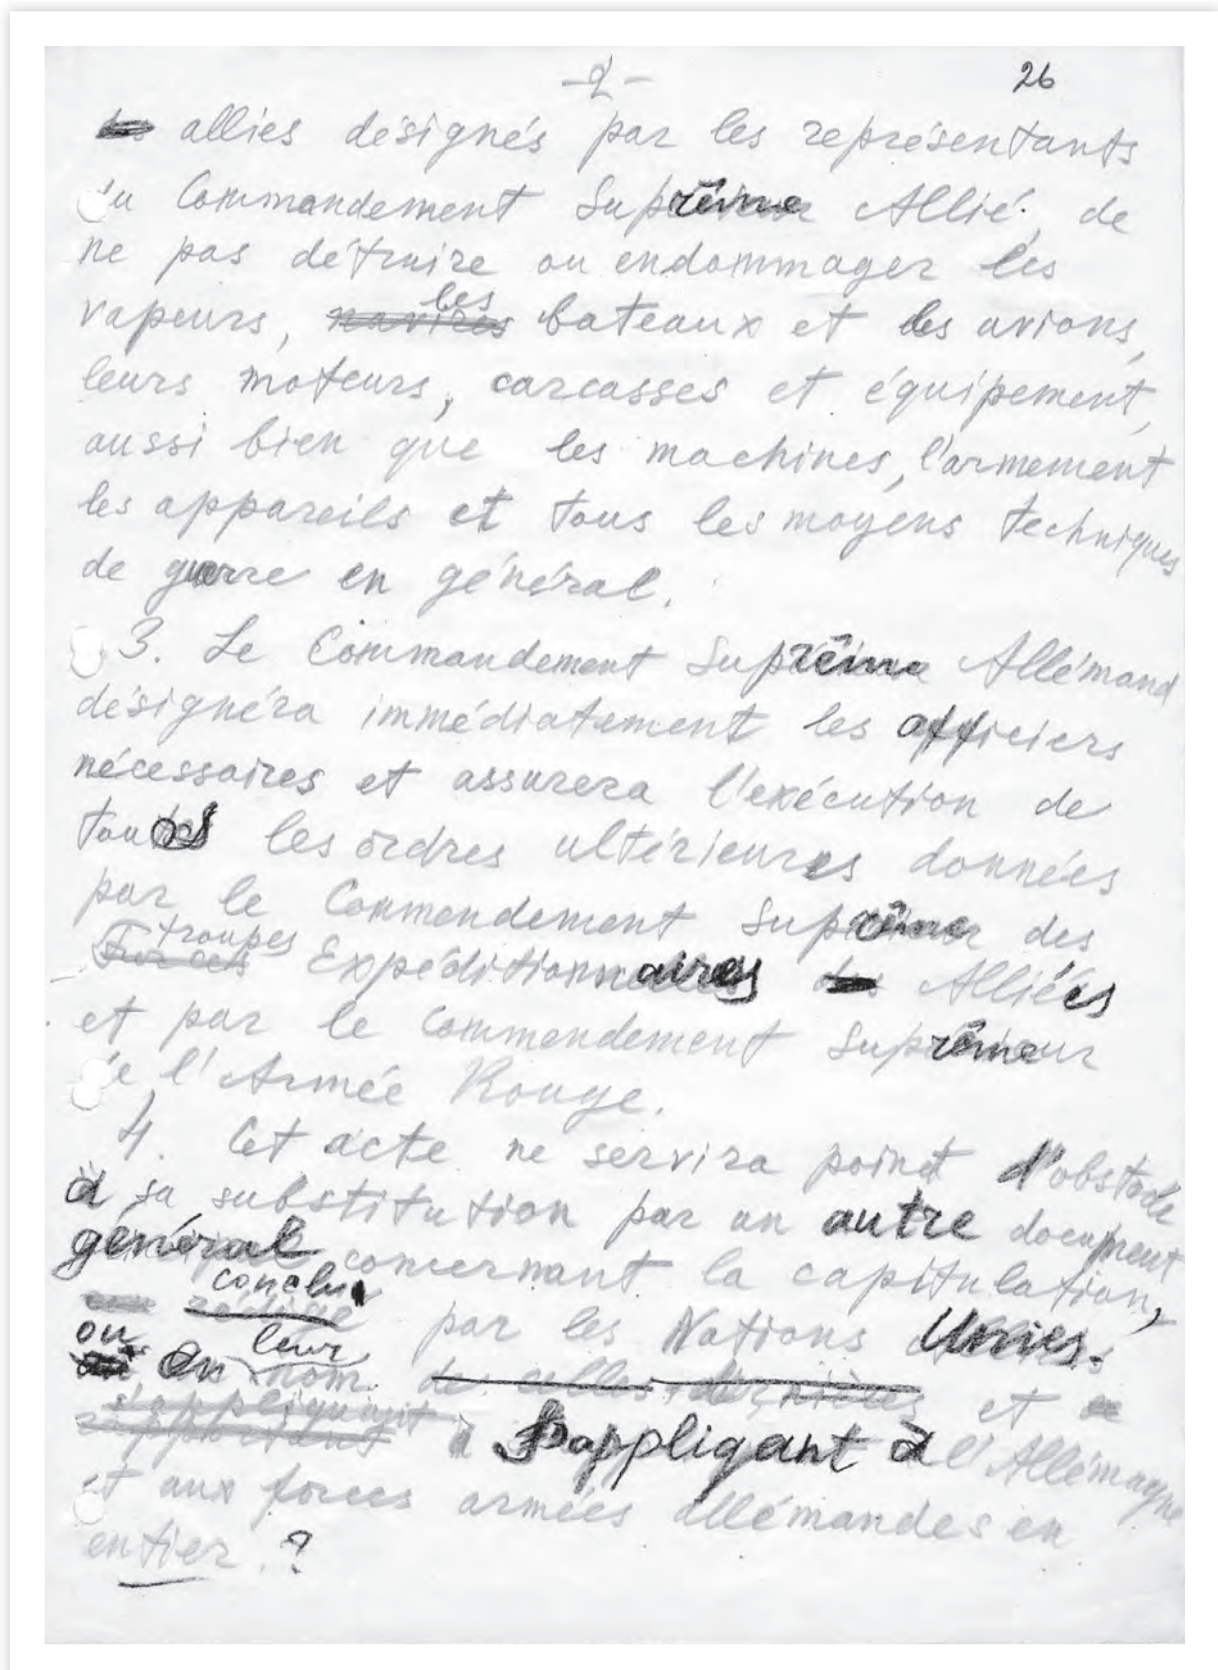 -2- 26
alliés désignés par les représentants
du Commandement Suprême Allié, de
ne pas détruire ou endommager les
vapeurs, navires les bateaux et les avions,
leurs moteurs, carcasses et équipement,
aussi bien que les machines, l'armement
les appareils et tous les moyens techniques
de guerre en général.
3. Le Commandement Suprême Allémand
désignéra immédiatement les officiers
nécessaires et assurera l'exécution de
tous les ordres ultérieures données
par le Commendement Suprême des
troupes
Forces Expéditionnaires Alliées
et par le Commendement Suprême
de l'Armée Rouge.
4. Cet acte ne servira point d'obstacle
à sa substitution par un autre document
général concernant la capitulation,
conclu
rédigé par les Nations Unies.
ou en leur nom de celles dernières et
s'appliquant
à s'appligant à l'Allémagne
et aux forces armées allémandes en
entier. ?